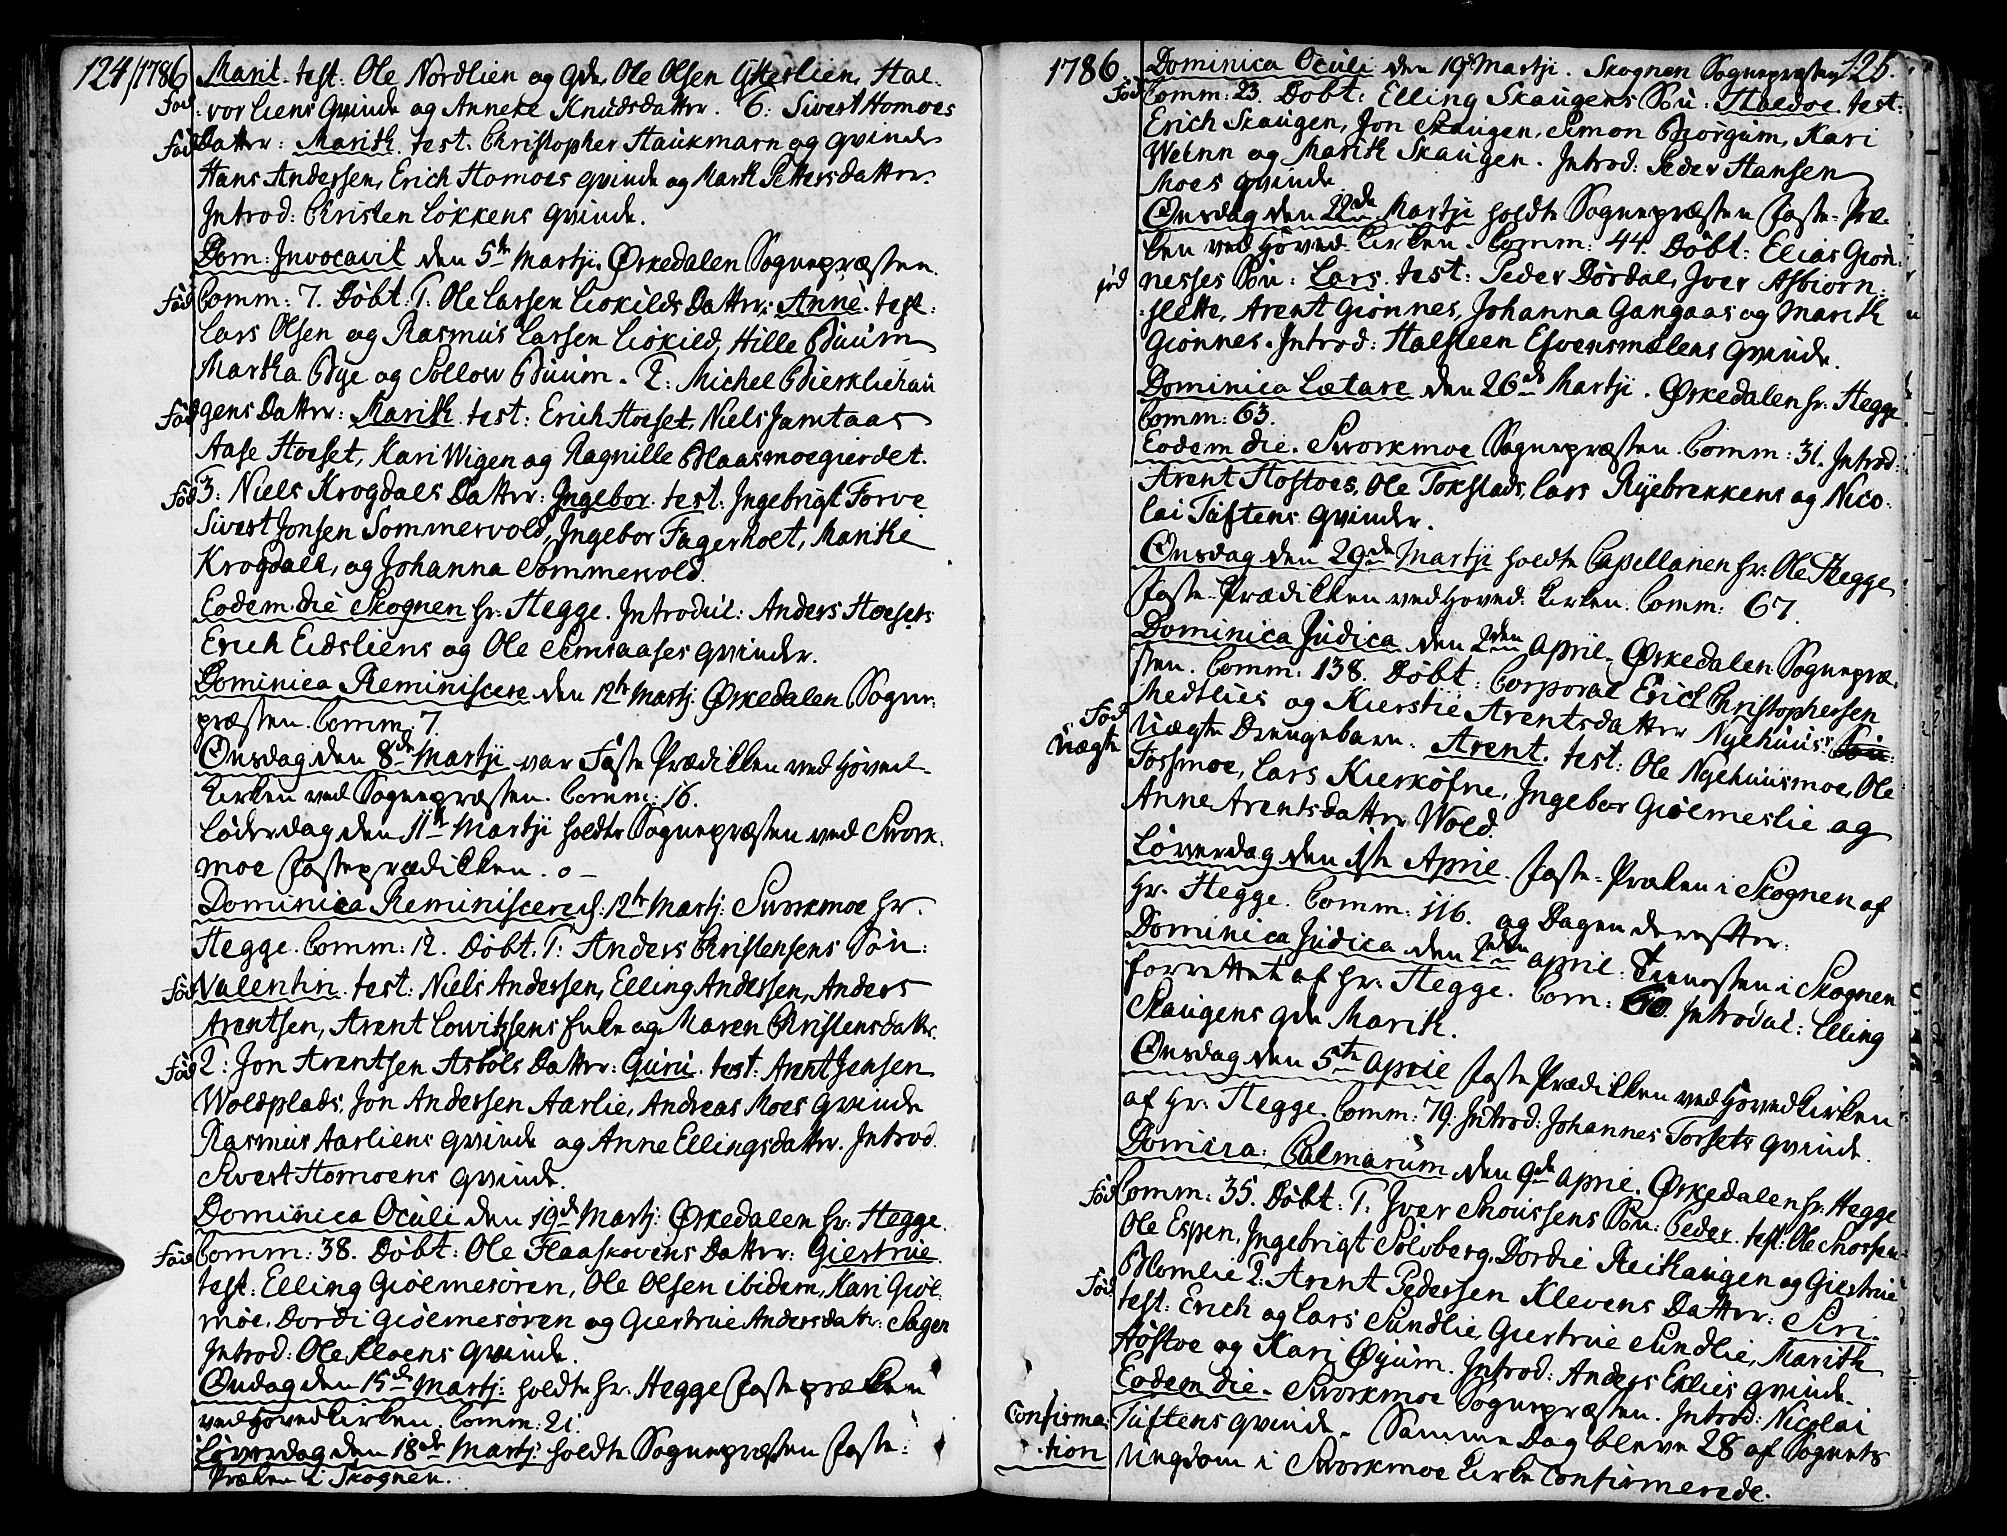 124/1786 Marit. test: Ole Nordlien og qde, Ole Olsen Gitteslien, Hal-
Fød vor liens Qvinde og Anneke Knudsdatter. 6: Sivert Homoes
Fød Datter: Marith. test. Christopher Haukmarn og qvinde
Hans Andersen, Erich Homoes qvinde og Marit Pettersdatter.
Introd: Christen Løkkens qvinde.
Dom: Invocavit den 5te Martji. Ørkedalen Sognepræsten.
Fød Comm: 7. Døbt: 1. Ole Larsen Liokilds Datter: Anne. test:
Lars Olsen og Rasmus Larsen Liokild, Hille Buum
Martha Bye og Sollow Buum. 2: Michel Bierkliehau
Fød gens Datter: Marith. test: Erich Hoeset, Niels Jamtaas
Aase Hoeset, Kari Wigen og Ragnille Blaasmoegierdet.
Fød 3: Niels Krogdals Datter: Ingebor. test: Ingebrigt Forve
Sivert Jonsen Sommervold, Ingebor Fagerholt, Marithe
Krogdall, og Johanna Sommervold.
Eodem die Skognen hr: Hegge. Introduc: Anders Hoesets
Erich Eidsliens og Ole Elmsaases qvinder.
Dominica Reminiscere den 12te Martj: Ørkedalen Sogne-
præsten. Comm: 7.
Onsdag den 8de Martji var Faste Prædikken ved Hoved-
kirken ved Sognepræsten. Comm: 16.
Løverdag den 11te Martji holdte Sognepræsten ved Svork-
moe fasteprædikken. o –
Dominica Reminiscere d: 12te Martj: Svorkmoe hr.
Hegge. Comm: 12. Døbt. 1: Anders Christensens Søn:
Fød Valentin. test: Niels Andersen, Elling Andersen, Anders
Arentsen, Arent Lowitzsens Enke og Maren Christensdatter.
Fød 2: Jon Arentsen Asbøls Datter: Guru. test: Arent Jensen
Woldplads, Jon Andersen Aarlie, Andreas Moes qvinde
Rasmus Aarliens qvinde og Anne Ellingsdatter. Introd.
Sivert Homoens qvinde.
Dominica Oculi den 19de Martj: Ørkedalen hr: Hegge.
Fød Comm: 38. Døbt: Ole Flaaskovens Datter: Giertrue.
test: Elling Gioemesøren, Ole Olsen ibidem, Kari Gioe-
moe, Dordi Gioemesøren og Giertrue Andersdatter: Sagen
Introd: Ole Kloens qvinde.
Onsdag den 15de Martj: holdte hr: Hegge fasteprækken
ved Hovedkirken. Comm: 21.
Løverdag den 18de Martj: holdte Sognepræsten Faste-
Præken i Skognen.
1786 Dominica Oculi den 19de Martji. Skognen Sognepræsten 125.
Fød Comm: 23. Døbt: Elling Skaugens Søn: Haldoe. test:
Erich Skaugen, Jon Skaugen, Simon Biorgum, Kari
Weinn og Marith Skaugen. Introd: Peder Hansen
Moes qvinde.
Onsdag den 22de Martji holdte Sognepræsten Faste-Præ-
ken ved Hoved-kirken. Comm: 44. Døbt: Elias Gion-
Fød nesses Søn: Lars. test: Peder Dørdal, Iver Asbiorn-
slette, Arent Gionnes, Johanna Gangaas og Marith
Gionnes. Introd: Halsteen Elvensmølens qvinde.
Dominica Lætare den 26de Martji. Ørkedalen hr: Hegge
Comm: 63.
Eodem die. Svorkmoe Sognepræsten. Comm: 31. Introd:
Arent Hostoes, Ole Tokstads, Lars Ryebrekkens og Nico-
lai Tuftens qvinder.
Onsdag den 29de Martji holdte Capellanen hr: Ole Hegge
Faste-Prædikken ved Hoved-kirken. Comm: 67.
Dominica Judica den 2den April. Ørkedalen Sognepræ-
sten. Comm: 138. Døbt: Corporal Erich Christophersen
Fød Medtlies og Kierstie Arentsdatter Nyehuus:
Uægte Uægte Drengebarn. Arent. test: Ole Nyehuusmoe, Ole
Fossmoe, Lars Kierkøfne, Ingebor Gioemeslie og
Anne Arentsdatter Wold.
Løverdag den 1ste April. Faste-Præken i Skognen af
hr. Hegge. Comm: 116. og Dagen derefter:
Dominica Judica den 2den April. Tienesten i Skognen
forrettet af hr: Hegge. Com: 60. Introduc: Elling
Skaugens qde Marith.
Onsdag den 5te April Faste Prædikken ved Hovedkirken
af hr: Hegge. Comm: 79. Introd: Johannes Torsets qvinde.
Domica: Palmarum den 9de April. Ørkedalen hr: Hegge
Fød Comm: 35. Døbt: 1: Iver Snoussens Søn: Peder. test: Ole Snossen
Ole Espen, Ingebrigt Solvberg, Dordie Reithaugen og Giertrue
Fød Blomlie 2: Arent Pedersen Klevens Datter: Siri.
test: Erich og Lars Sundlie, Giertrue Sundlie, Marith
Høstoe og Kari Øyum. Introd: Anders Eklies qvinde.
Eodem die. Svorkmoe Sognepræsten. Introd: Nicolai
Confirma- Tuftens qvinde. Samme Dag bleve 28 af Sognets
tion Ungdom i Svorkmoe kirke Confirmerede.